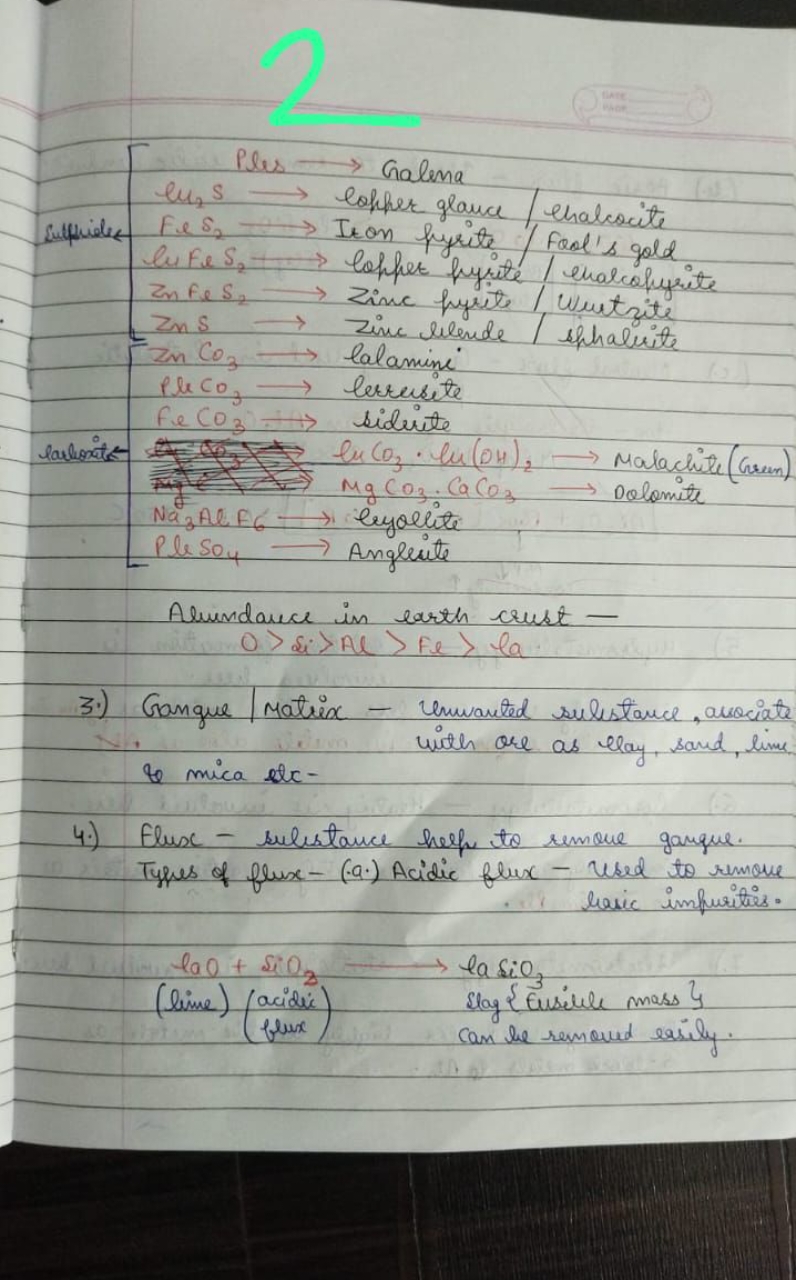 2
DATE
PAGE
PbS → Galena
Cu₂S → Copper glance / Chalcocite
Sulphide FeS₂ → Iron pyrite / Fool's gold
CuFeS₂ → Copper pyrite / chalcopyrite
ZnFeS₂ → Zinc pyrite / Wurtzite
ZnS → Zinc blende / sphalerite
ZnCO₃ → Calamine
PbCO₃ → Cerrusite
FeCO₃ → siderite
Carbonate CuCO₃·Cu(OH)₂ → Malachite (Green)
MgCO₃·CaCO₃ → Dolomite
Na₃AlF₆ → Cryollite
PbSO₄ → Anglesite
Abundance in earth crust —
O > Si > Al > Fe > Ca
3.) Gangue / Matrix — unwanted substance, associate
with ore as clay, sand, lime
& mica etc -
4.) Flux — substance help to remove gangue.
Types of flux - (a.) Acidic flux — Used to remove
basic impurities.
CaO + SiO₂ → CaSiO₃
(lime) (acidic flux) Slag { Fusible mass }
can be removed easily.